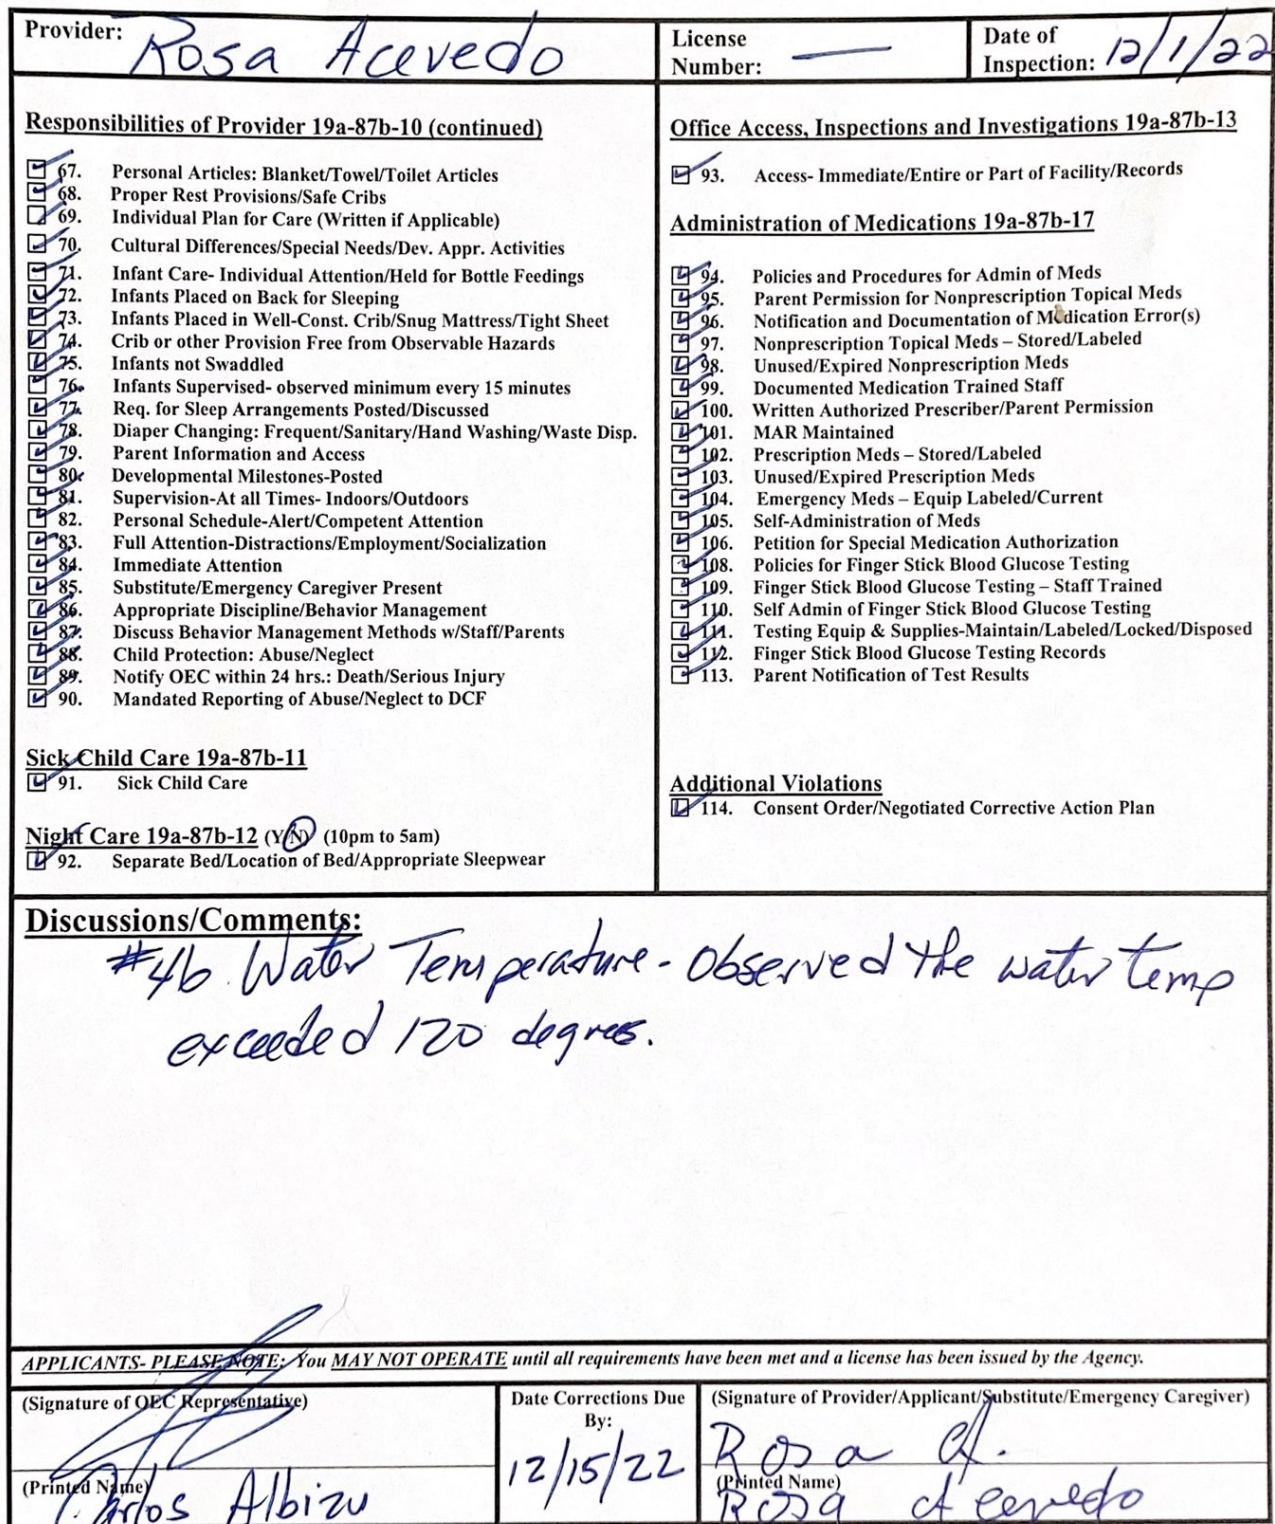 Provider: Rosa Acevedo
License Number: —
Date of Inspection: 12/1/22
Responsibilities of Provider 19a-87b-10 (continued)
67. Personal Articles: Blanket/Towel/Toilet Articles
68. Proper Rest Provisions/Safe Cribs
69. Individual Plan for Care (Written if Applicable)
70. Cultural Differences/Special Needs/Dev. Appr. Activities
71. Infant Care- Individual Attention/Held for Bottle Feedings
72. Infants Placed on Back for Sleeping
73. Infants Placed in Well-Const. Crib/Snug Mattress/Tight Sheet
74. Crib or other Provision Free from Observable Hazards
75. Infants not Swaddled
76. Infants Supervised- observed minimum every 15 minutes
77. Req. for Sleep Arrangements Posted/Discussed
78. Diaper Changing: Frequent/Sanitary/Hand Washing/Waste Disp.
79. Parent Information and Access
80. Developmental Milestones-Posted
81. Supervision-At all Times- Indoors/Outdoors
82. Personal Schedule-Alert/Competent Attention
83. Full Attention-Distractions/Employment/Socialization
84. Immediate Attention
85. Substitute/Emergency Caregiver Present
86. Appropriate Discipline/Behavior Management
87. Discuss Behavior Management Methods w/Staff/Parents
88. Child Protection: Abuse/Neglect
89. Notify OEC within 24 hrs.: Death/Serious Injury
90. Mandated Reporting of Abuse/Neglect to DCF
Sick Child Care 19a-87b-11
91. Sick Child Care
Night Care 19a-87b-12 (Y/N) (10pm to 5am)
92. Separate Bed/Location of Bed/Appropriate Sleepwear
Office Access, Inspections and Investigations 19a-87b-13
93. Access- Immediate/Entire or Part of Facility/Records
Administration of Medications 19a-87b-17
94. Policies and Procedures for Admin of Meds
95. Parent Permission for Nonprescription Topical Meds
96. Notification and Documentation of Medication Error(s)
97. Nonprescription Topical Meds – Stored/Labeled
98. Unused/Expired Nonprescription Meds
99. Documented Medication Trained Staff
100. Written Authorized Prescriber/Parent Permission
101. MAR Maintained
102. Prescription Meds – Stored/Labeled
103. Unused/Expired Prescription Meds
104. Emergency Meds – Equip Labeled/Current
105. Self-Administration of Meds
106. Petition for Special Medication Authorization
108. Policies for Finger Stick Blood Glucose Testing
109. Finger Stick Blood Glucose Testing – Staff Trained
110. Self Admin of Finger Stick Blood Glucose Testing
111. Testing Equip & Supplies-Maintain/Labeled/Locked/Disposed
112. Finger Stick Blood Glucose Testing Records
113. Parent Notification of Test Results
Additional Violations
114. Consent Order/Negotiated Corrective Action Plan
Discussions/Comments:
#46 Water Temperature - Observed the water temp
exceeded 120 degrees.
APPLICANTS- PLEASE NOTE: You MAY NOT OPERATE until all requirements have been met and a license has been issued by the Agency.
(Signature of OEC Representative)
(Printed Name)
Carlos Albizu
Date Corrections Due
By:
12/15/22
(Signature of Provider/Applicant/Substitute/Emergency Caregiver)
Rosa A.
(Printed Name)
Rosa Acevedo